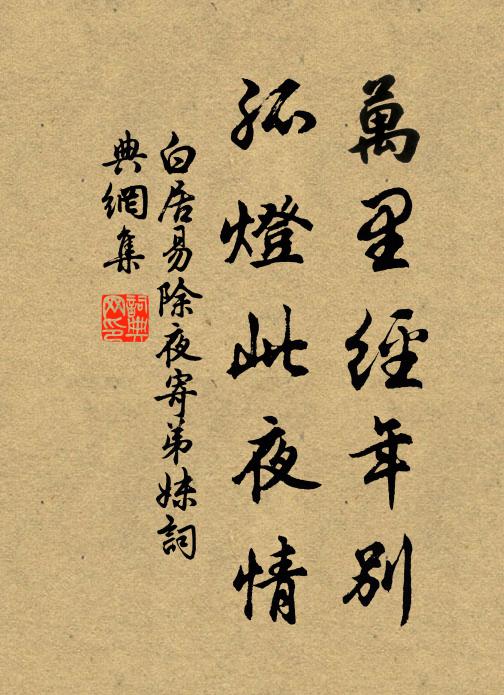 萬里經年別
孤燈此夜情
白居易除夜寄弟妹詞
典網集
詞典网印